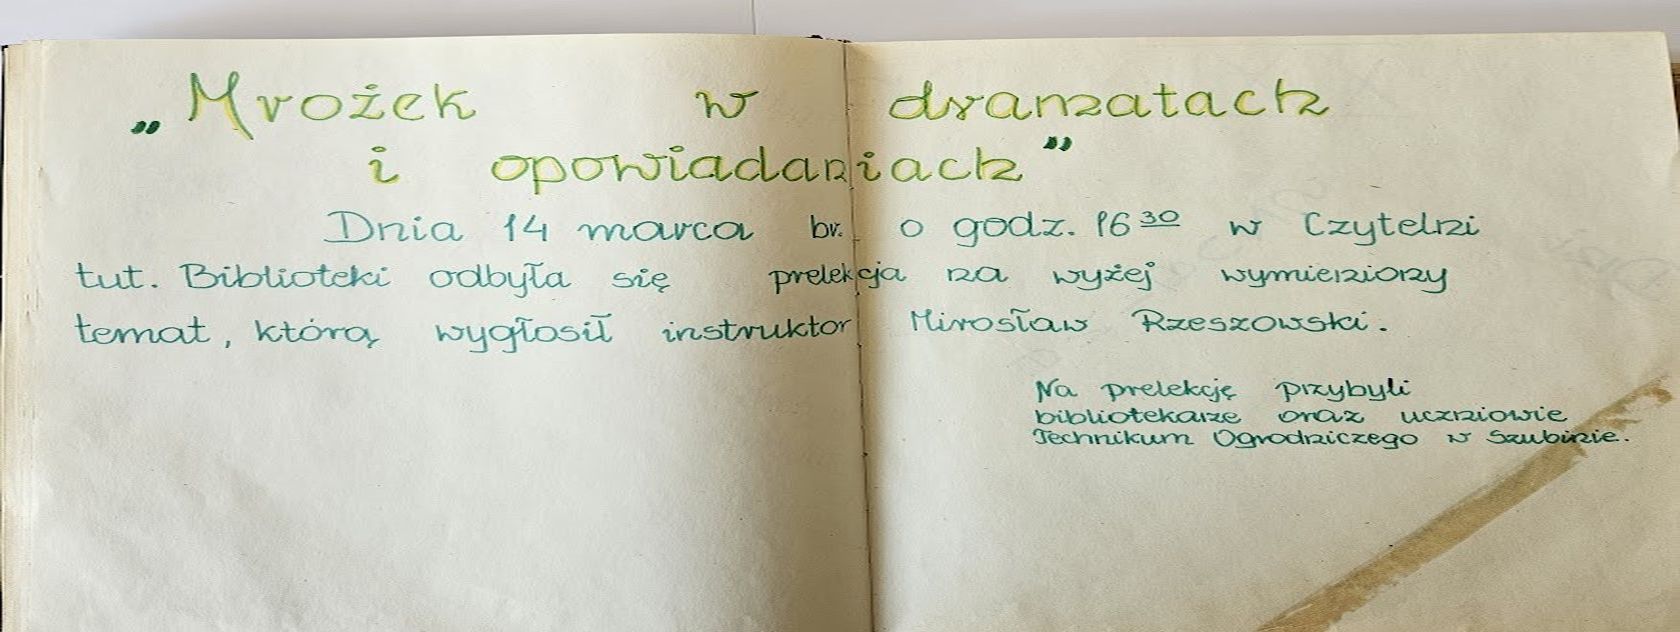 „Mrożek w dramatach
i opowiadaniach”
Dnia 14 marca br. o godz. 16 30 w Czytelni
tut. Biblioteki odbyła się prelekcja na wyżej wymieniony
temat, którą wygłosił instruktor Mirosław Rzeszowski.
Na prelekcję przybyli
bibliotekarze oraz uczniowie
Technikum Ogrodniczego w Szubinie.